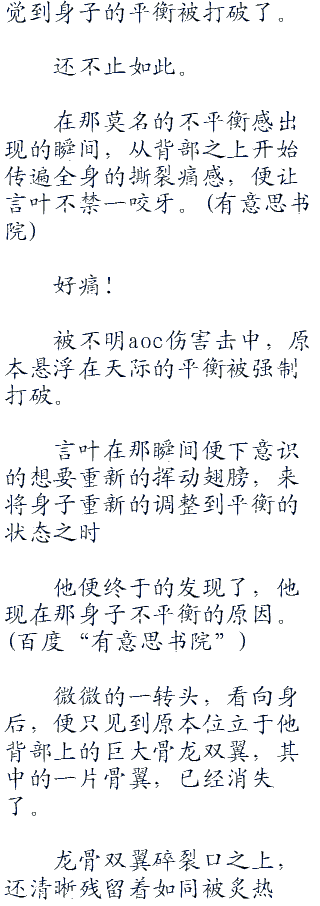 觉到身子的平衡被打破了。
还不止如此。
在那莫名的不平衡感出
现的瞬间，从背部之上开始
传遍全身的撕裂痛感，便让
言叶不禁一咬牙。(有意思书
院)
好痛！
被不明aoc伤害击中，原
本悬浮在天际的平衡被强制
打破。
言叶在那瞬间便下意识
的想要重新的挥动翅膀，来
将身子重新的调整到平衡的
状态之时
他便终于的发现了，他
现在那身子不平衡的原因。
(百度“有意思书院”)
微微的一转头，看向身
后，便只见到原本位立于他
背部上的巨大骨龙双翼，其
中的一片骨翼，已经消失
了。
龙骨双翼碎裂口之上，
还清晰残留着如同被炙热